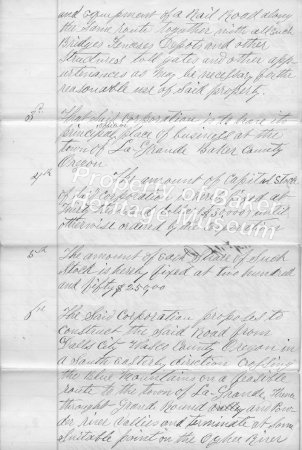 and equipment of a Rail Road along
the Same route together with all Such
Bridges Fences Depots and other
Structures toll gates and other appurtenances
as they be necessary for the
reasonable use of Said property.
3rd That Said Corporation is to have its
principal place of business at the
town of La-Grande Baker County
Oregon
4th The amount of Capital Stock
of Said Corporation is hereby fixed at
otherwise ordered by
5th The amount of each Share of Such
Stock is hereby fixed at two hundred
and fifty $250,00
6th The Said Corporation proposes to
Construct the Said Road from
Dalls City Wasco County Oregon in
a South easterly direction Crossing
the blue mountains on a feasible
route to the town of La-Grande, thence
through Grand Round valley and Powder
river vallies and terminate at Some
Suitable point on the Ogden River
Property of Baker
Heritage Museum